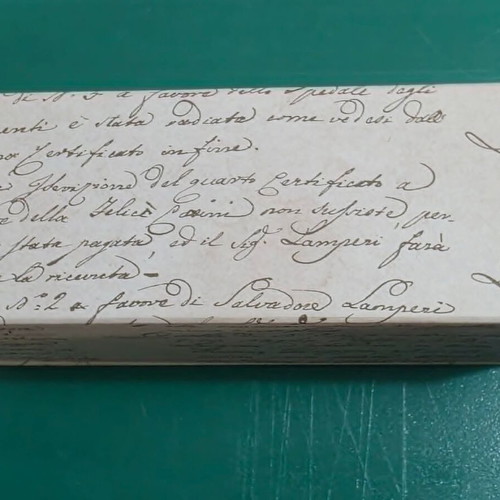 di N. 3 a favore dello Spedale degli
enti è stata radiata come vedesi dall
Certificato in fine.
Iscrizione del quarto Certificato a
e della Felice non sussiste, per-
stata pagata ed il Sig.r Lamperi farà
La ricevuta
N.o 2 a favore di Salvadore Lamperi